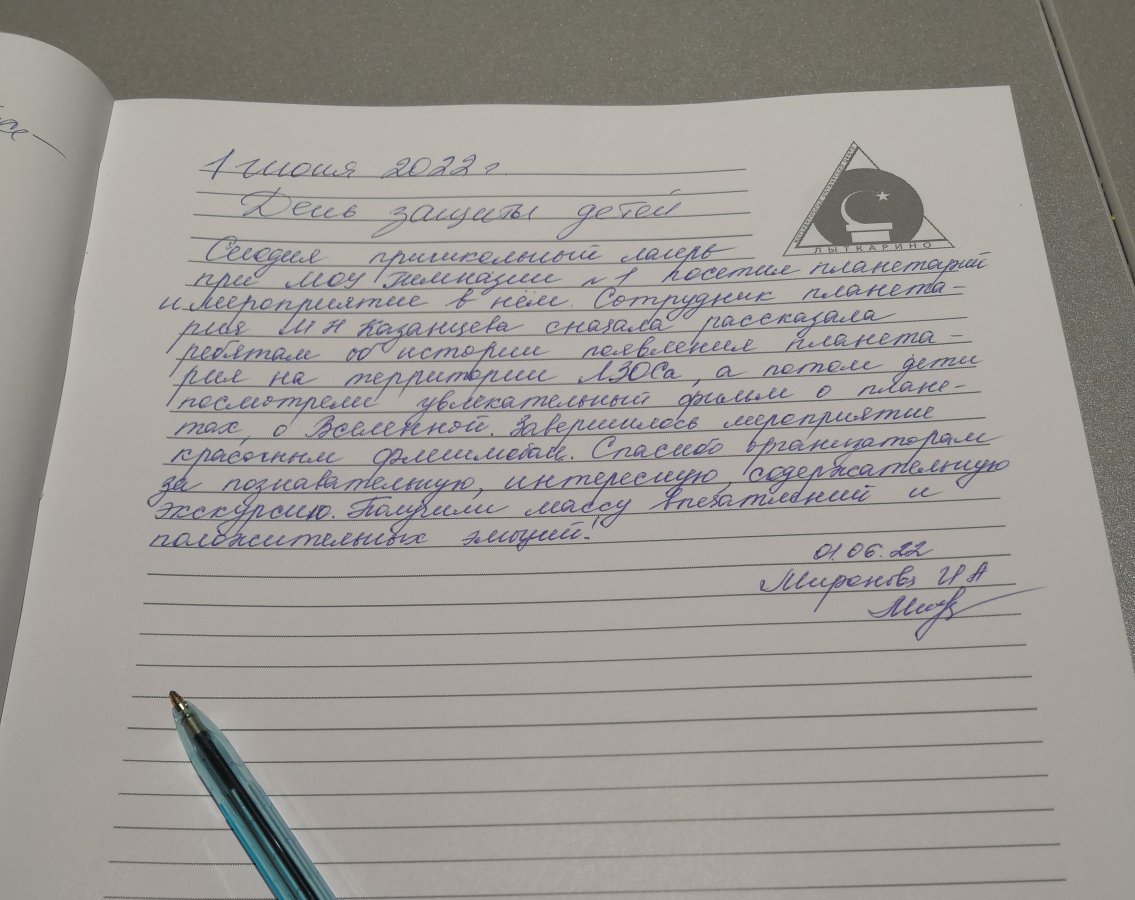 1 июня 2022 г.
День защиты детей
Сегодня пришкольный лагерь
при МОУ Гимназии №1 посетил планетарий
и мероприятие в нём. Сотрудник планета-
рия М Н Казанцева сначала рассказала
ребятам об истории появления планета-
рия на территории ЛЗОСа, а потом дети
посмотрели увлекательный фильм о плане-
тах, о Вселенной. Завершилось мероприятие
красочным флешмобом. Спасибо организаторам
за познавательную, интересную, содержательную
экскурсию. Получили массу впечатлений и
положительных эмоций!
01 06. 22
Миронова И А
ЛЫТКАРИНО